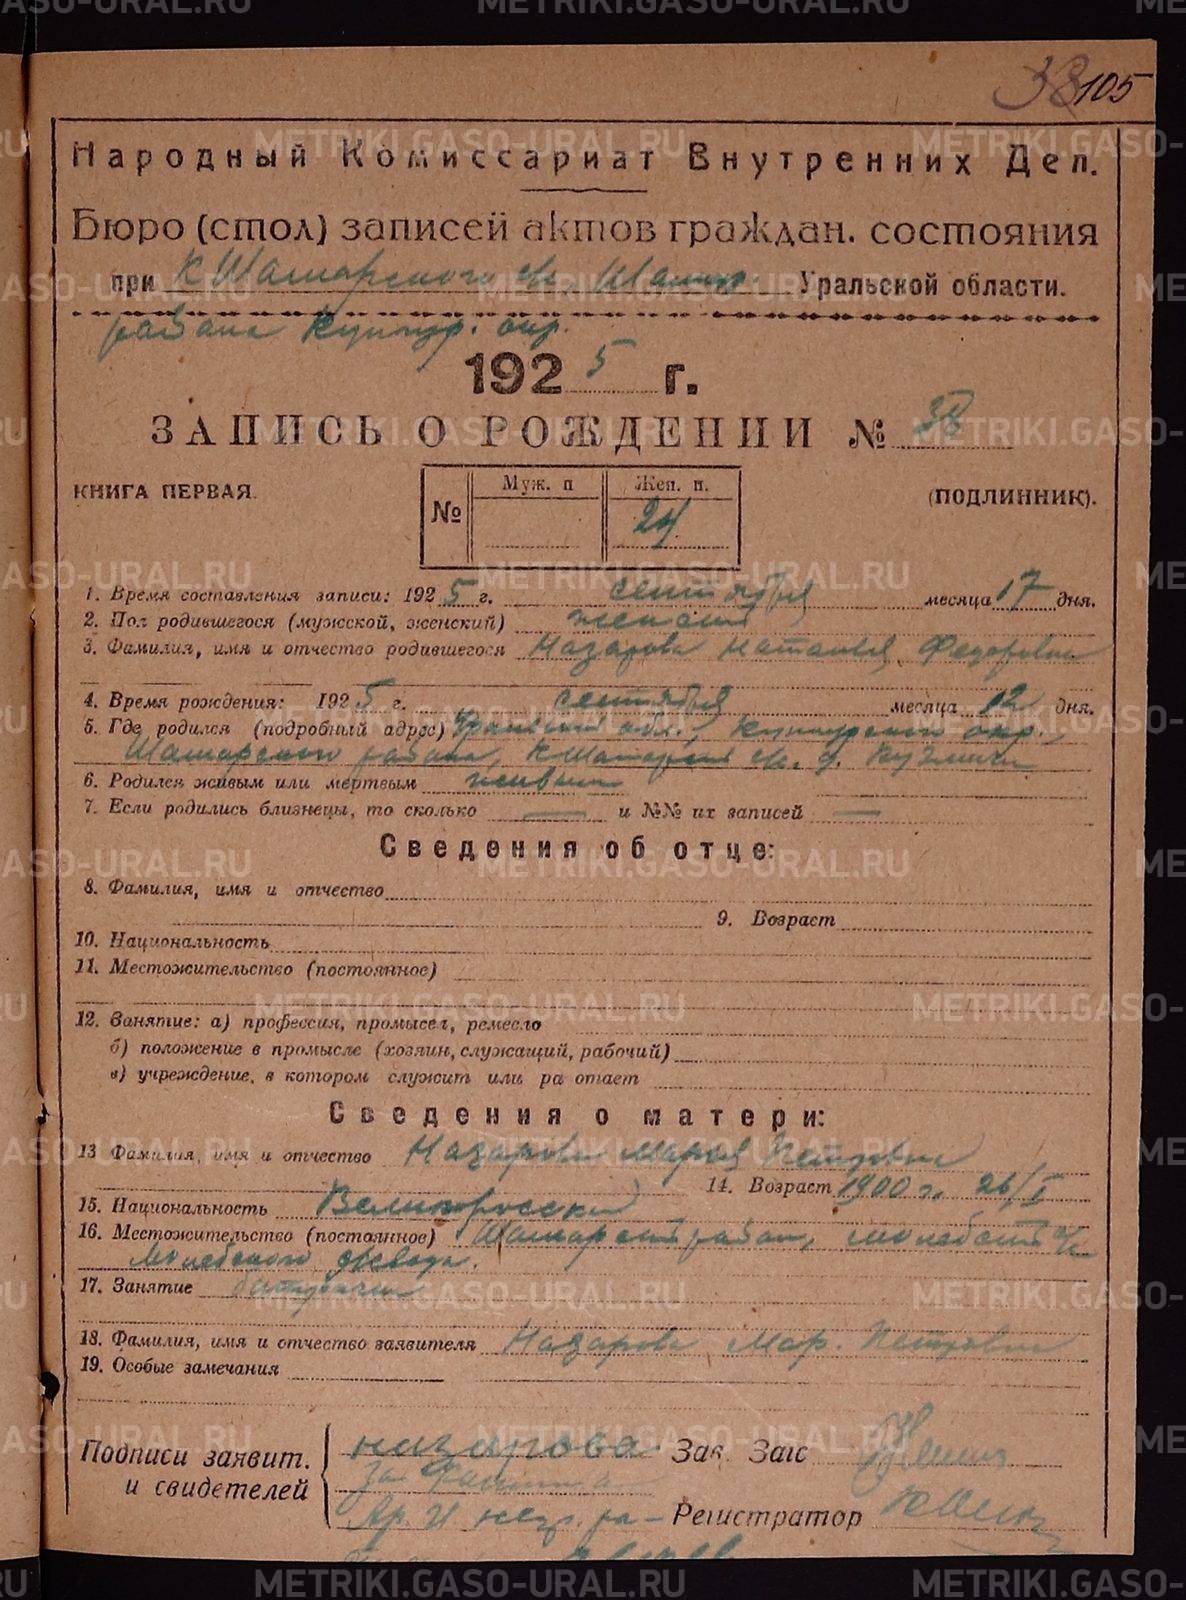 38 105
Народный Комиссариат Внутренних Дел.
Бюро (стол) записей актов граждан. состояния
при К Шамарского с/с, Шамар. Уральской области.
района Кунгур. окр.
1925 г.
ЗАПИСЬ О РОЖДЕНИИ № 38
КНИГА ПЕРВАЯ. № Муж. п Жен. п. 24 (ПОДЛИННИК).
1. Время составления записи: 1925 г. сентября месяца 17 дня.
2. Пол родившегося (мужской, женский) женский
3. Фамилия, имя и отчество родившегося Назарова Наталья Федоровна
4. Время рождения: 1925 г. сентября месяца 12 дня.
5. Где родился (подробный адрес) Уральской обл., Кунгурского окр.,
Шамарского района, К Шамарский с/с. д. Кузминки
6. Родился живым или мертвым живым
7. Если родились близнецы, то сколько — и №№ их записей —
Сведения об отце:
8. Фамилия, имя и отчество
9. Возраст
10. Национальность
11. Местожительство (постоянное)
12. Занятие: а) профессия, промысел, ремесло
б) положение в промысле (хозяин, служащий, рабочий)
в) учреждение, в котором служит или ра отает
Сведения о матери:
13 Фамилия, имя и отчество Назарова Мария Петровна
14. Возраст 1900 г. 26/I
15. Национальность Великоросский
16. Местожительство (постоянное) Шамарский район, Молебский с/с
Молебского завода.
17. Занятие батрачка
18. Фамилия, имя и отчество заявителя Назарова Мар. Петровна
19. Особые замечания
Подписи заявит. и свидетелей назарова Зав. Загс
Регистратор
METRIKI.GASO-URAL.RU